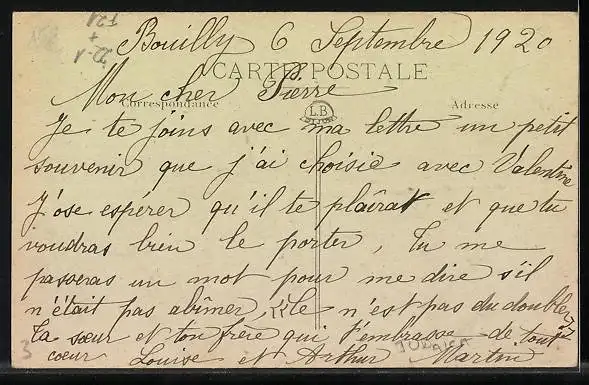 Bouilly 6 Septembre 1920
CARTE POSTALE
Mon cher Pierre
Correspondance
LB
Adresse
Je te joins avec ma lettre un petit
souvenir que j'ai choisie avec Valentine
J'ose espérer qu'il te plâirat et que tu
voudras bien le porter, Tu me
passeras un mot pour me dire s'il
n'était pas abîmer, "le n'est pas du doubler"
Ta sœur et ton frère qui t'embrasse de tout
cœur Louise et Arthur Martin
3